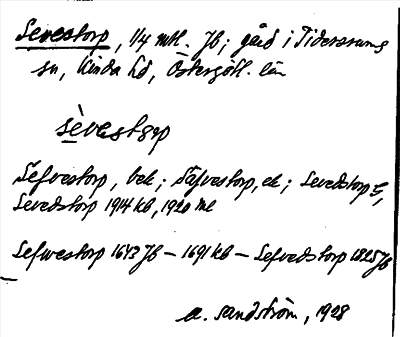 Sevestorp, 1/4 mtl. Jb; gård i Tidersrums
sn, Kinda hd, Östergötl. län
sèvestɷrp
Sefvestorp, bek; Säfvestorp, ek; Sevedstorp G,
Sevedstorp 1914 kb, 1920 ml
Sefwestorp 1643 Jb – 1691 kb – Sefvedstorp 1825 Jb
A. Sandström, 1928